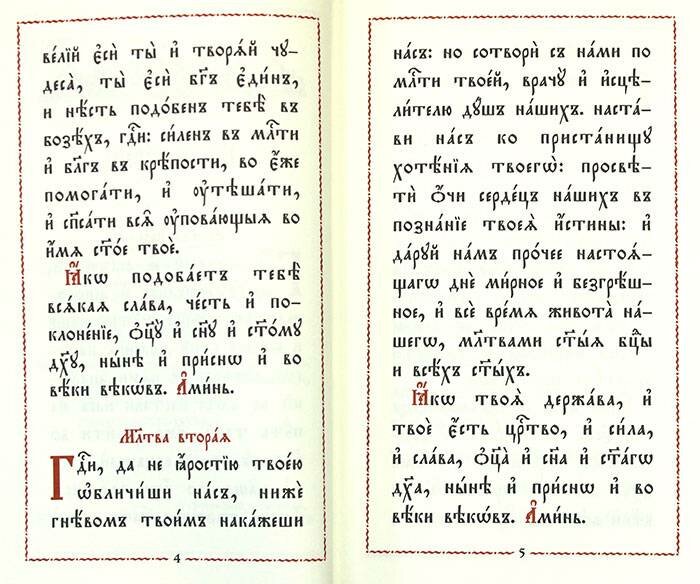 ве́лїй є҆сѝ ты̀ и҆ творѧ́й чꙋ-
деса̀, ты̀ є҆сѝ бг҃ъ є҆ди́нъ,
и҆ нѣ́сть подо́бенъ тебѣ̀ въ
бозѣ́хъ, гдⷭ҇и: си́ленъ въ млⷭ҇ти
и҆ бл҃гъ въ крѣ́пости, во є҆́же
помога́ти, и҆ ᲂу҆тѣша́ти,
и҆ спⷭ҇са́ти всѧ̑ ᲂу҆пова́ющыѧ во
и҆́мѧ ст҃о́е твоѐ.
Ꙗ҆́кѡ подоба́етъ тебѣ̀
всѧ́каѧ сла́ва, че́сть и҆ по-
клоне́нїе, ѻ҆ц҃ꙋ̀ и҆ сн҃ꙋ и҆ ст҃о́мꙋ
дх҃ꙋ, ны́нѣ и҆ при́снѡ и҆ во
вѣ́ки вѣкѡ́въ. А҆ми́нь.
Мл҃тва втора́ѧ
Гдⷭ҇и, да не ꙗ҆́ростїю твое́ю
ѡ҆бличи́ши на́съ, нижѐ
гнѣ́вомъ твои́мъ нака́жеши
4
на́съ: но сотворѝ съ на́ми по
млⷭ҇ти твое́й, врачꙋ̀ и҆ и҆сцѣ-
ли́телю дꙋ́шъ на́шихъ. наста́-
ви на́съ ко приста́нищꙋ
хотѣ́нїѧ твоегѡ̀: просвѣ-
тѝ ѻ҆́чи серде́цъ на́шихъ въ
позна́нїе твоеѧ̀ и҆́стины: и҆
да́рꙋй на́мъ про́чее настоѧ́-
щагѡ днѐ ми́рное и҆ безгрѣ́ш-
ное, и҆ всѐ вре́мѧ живота̀ на́-
шегѡ, мл҃твами ст҃ы́ѧ бцⷣы
и҆ всѣ́хъ ст҃ы́хъ.
Ꙗ҆́кѡ твоѧ̀ держа́ва, и҆
твоѐ є҆́сть црⷭ҇тво, и҆ си́ла,
и҆ сла́ва, ѻ҆ц҃а̀ и҆ сн҃а и҆ ст҃а́гѡ
дх҃а, ны́нѣ и҆ при́снѡ и҆ во
вѣ́ки вѣкѡ́въ. А҆ми́нь.
5